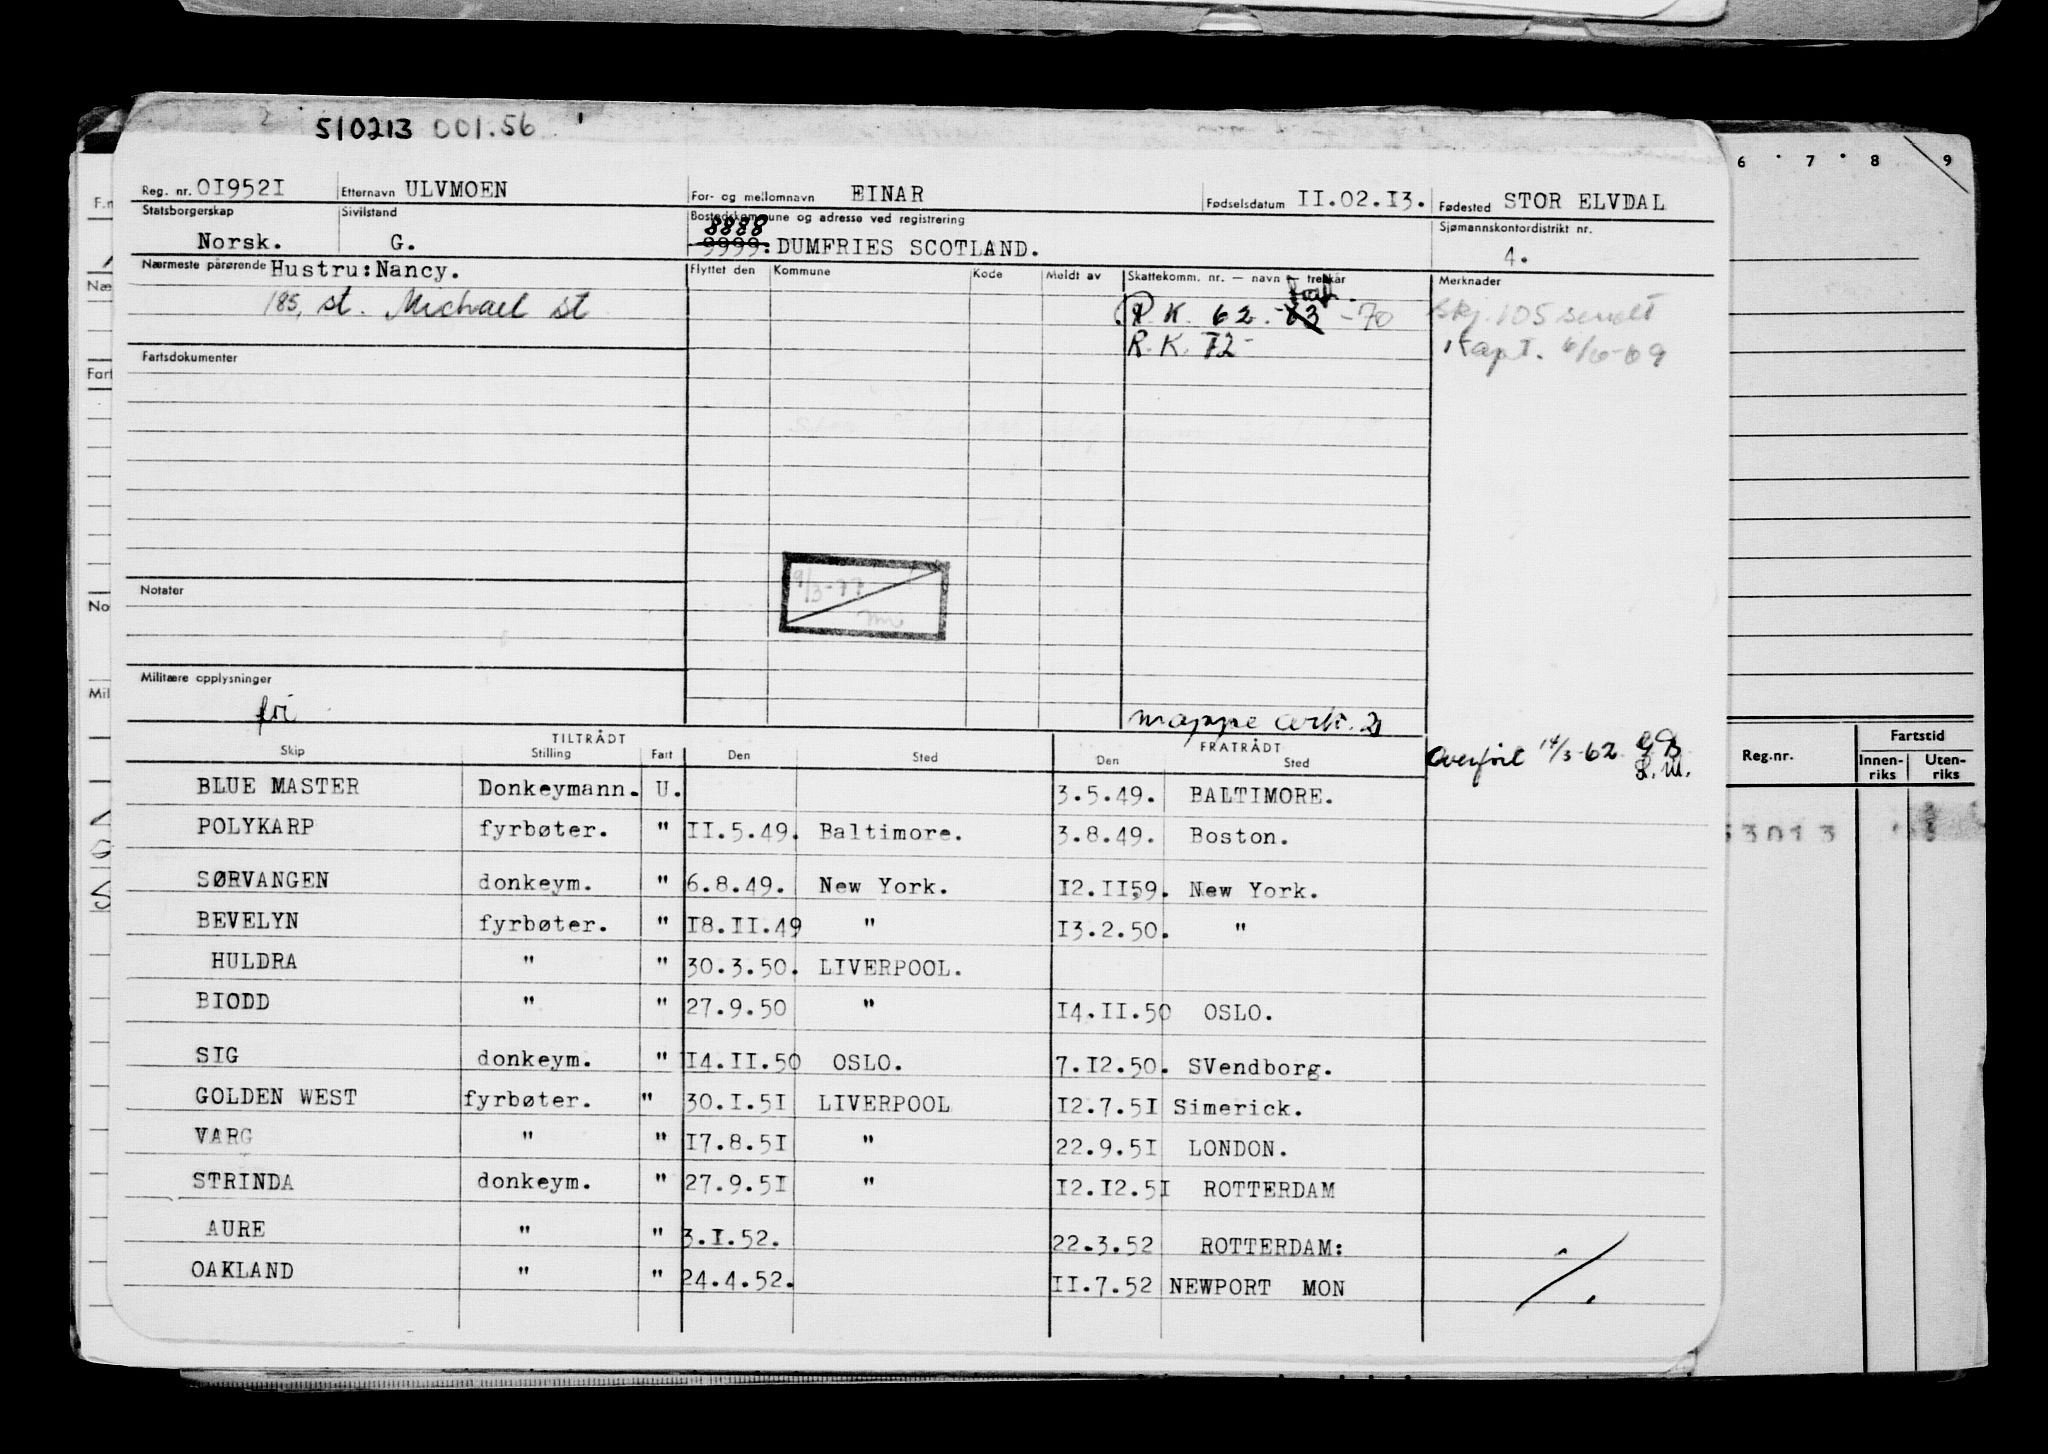 510213 001.56
6 . 7 . 8 9
Reg. nr. OI952I Etternavn ULVMOEN For- og mellomnavn EINAR Fødselsdatum II.02.I3. Fødested STOR ELVDAL
Statsborgerskap Sivilstand Bostedskommune og adresse ved registrering Sjømannskontordistrikt nr.
8888
Norsk. G. 9999: DUMFRIES SCOTLAND. 4.
Nærmeste pårørende Hustru:Nancy. Flyttet den Kommune Kode Meldt av Skattekomm. nr. — navn — trekkår Merknader
185, st. Michael st R. K. 62 - 63 - 70 Skj. 105 sendt
R. K. 72- Kapt. 6/6-69
Fartsdokumenter
9/3-77
Notater
Militære opplysninger
fri mappe ark. 2)
TILTRÅDT FRATRÅDT Overført 14/3-62
Skip Stilling Fart Den Sted Den Sted Reg.nr. Fartstid
Innen-riks Uten-riks
BLUE MASTER Donkeymann. U. 3.5.49. BALTIMORE.
POLYKARP fyrbøter. " II.5.49. Baltimore. 3.8.49. Boston. 53013
SØRVANGEN donkeym. " 6.8.49. New York. I2.II59. New York.
BEVELYN fyrbøter. " I8.II.49 " I3.2.50. "
HULDRA " " 30.3.50. LIVERPOOL.
BIODD " " 27.9.50 " I4.II.50 OSLO.
SIG donkeym. " I4.II.50 OSLO. 7.I2.50. SVendborg.
GOLDEN WEST fyrbøter. " 30.I.5I LIVERPOOL I2.7.5I Simerick.
VARG " " I7.8.5I " 22.9.5I LONDON.
STRINDA donkeym. " 27.9.5I " I2.I2.5I ROTTERDAM
AURE " " 3.I.52. 22.3.52 ROTTERDAM:
OAKLAND " " 24.4.52. II.7.52 NEWPORT MON